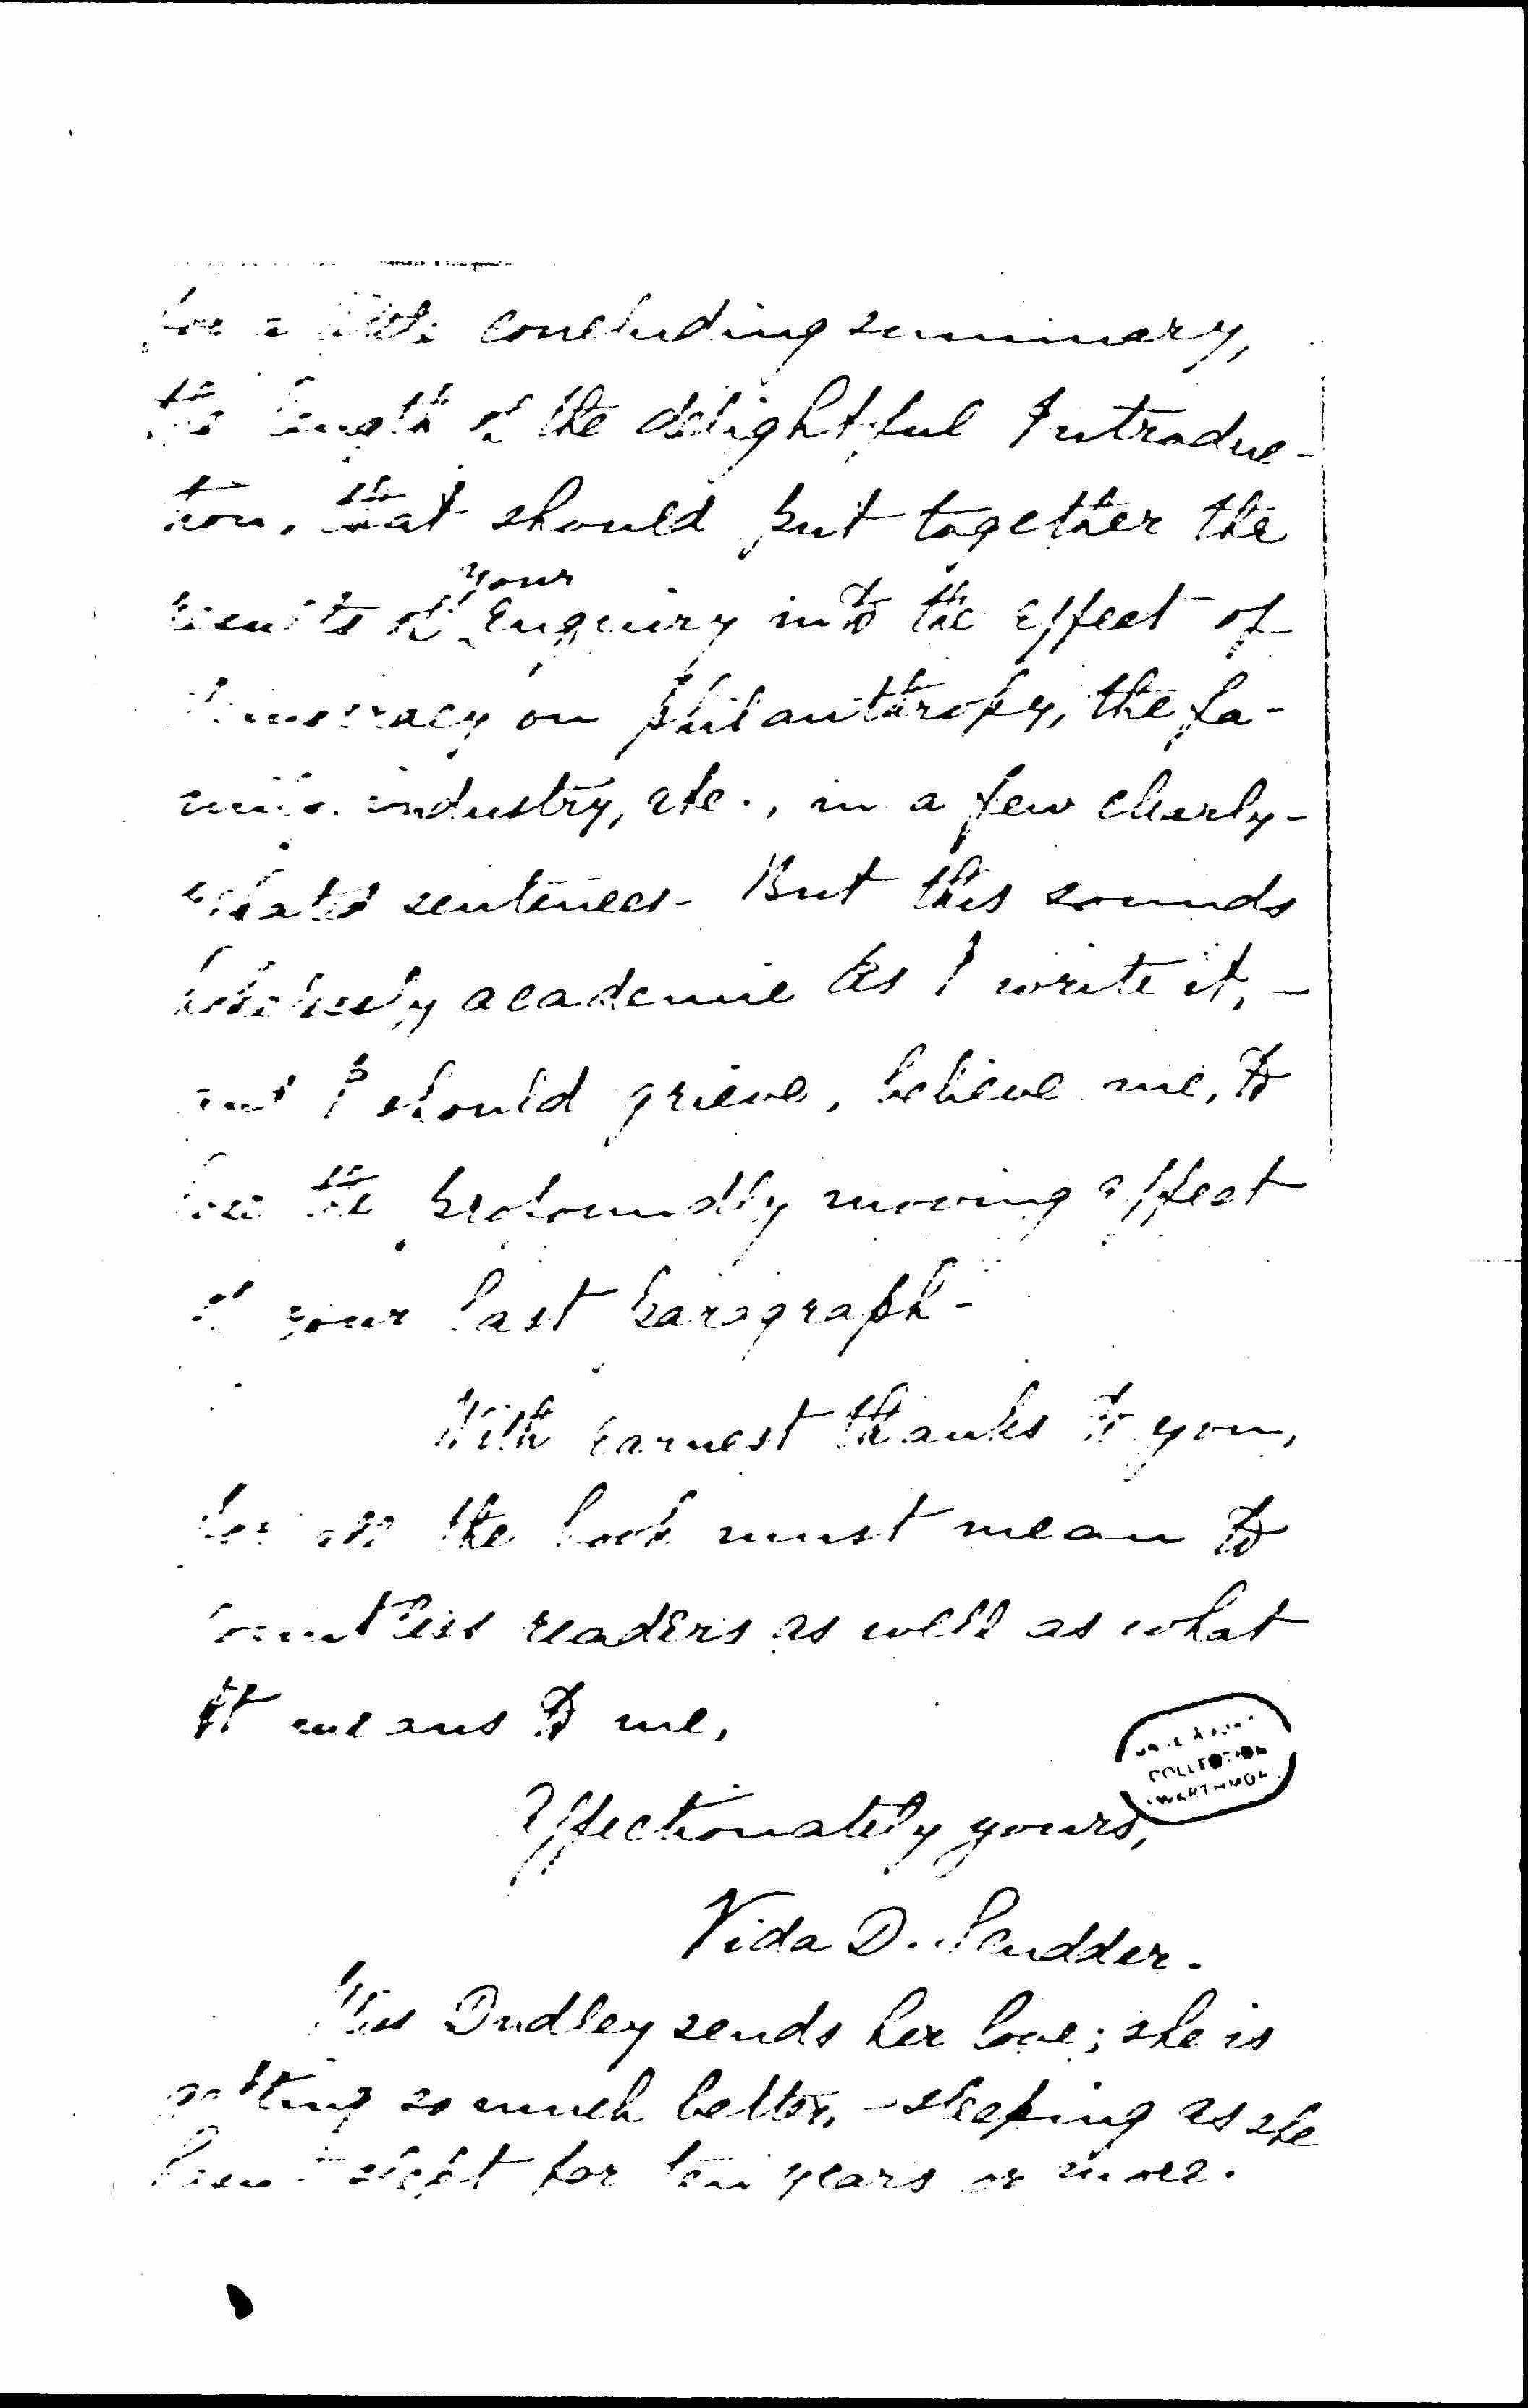 for a little concluding summary,
the length of the delightful Introduc-
tion, that should put together the
results of your enquiry into the effect of
democracy on philanthropy, the fa-
mily, industry, etc., in a few clearly-
related sentences- But this sounds
academic as I write it, -
and I should grieve, believe me, to
lose the profoundly moving effect
of your last paragraph-
With earnest thanks to you,
for all the book must mean to
countless readers as well as what
it means to me,
Affectionately yours,
Vida D. Scudder.
Miss Dudley sends her love; she is
getting so much better, - sleeping as she
hasn't slept for ten years or more.
COLLECTION
SWARTHMORE